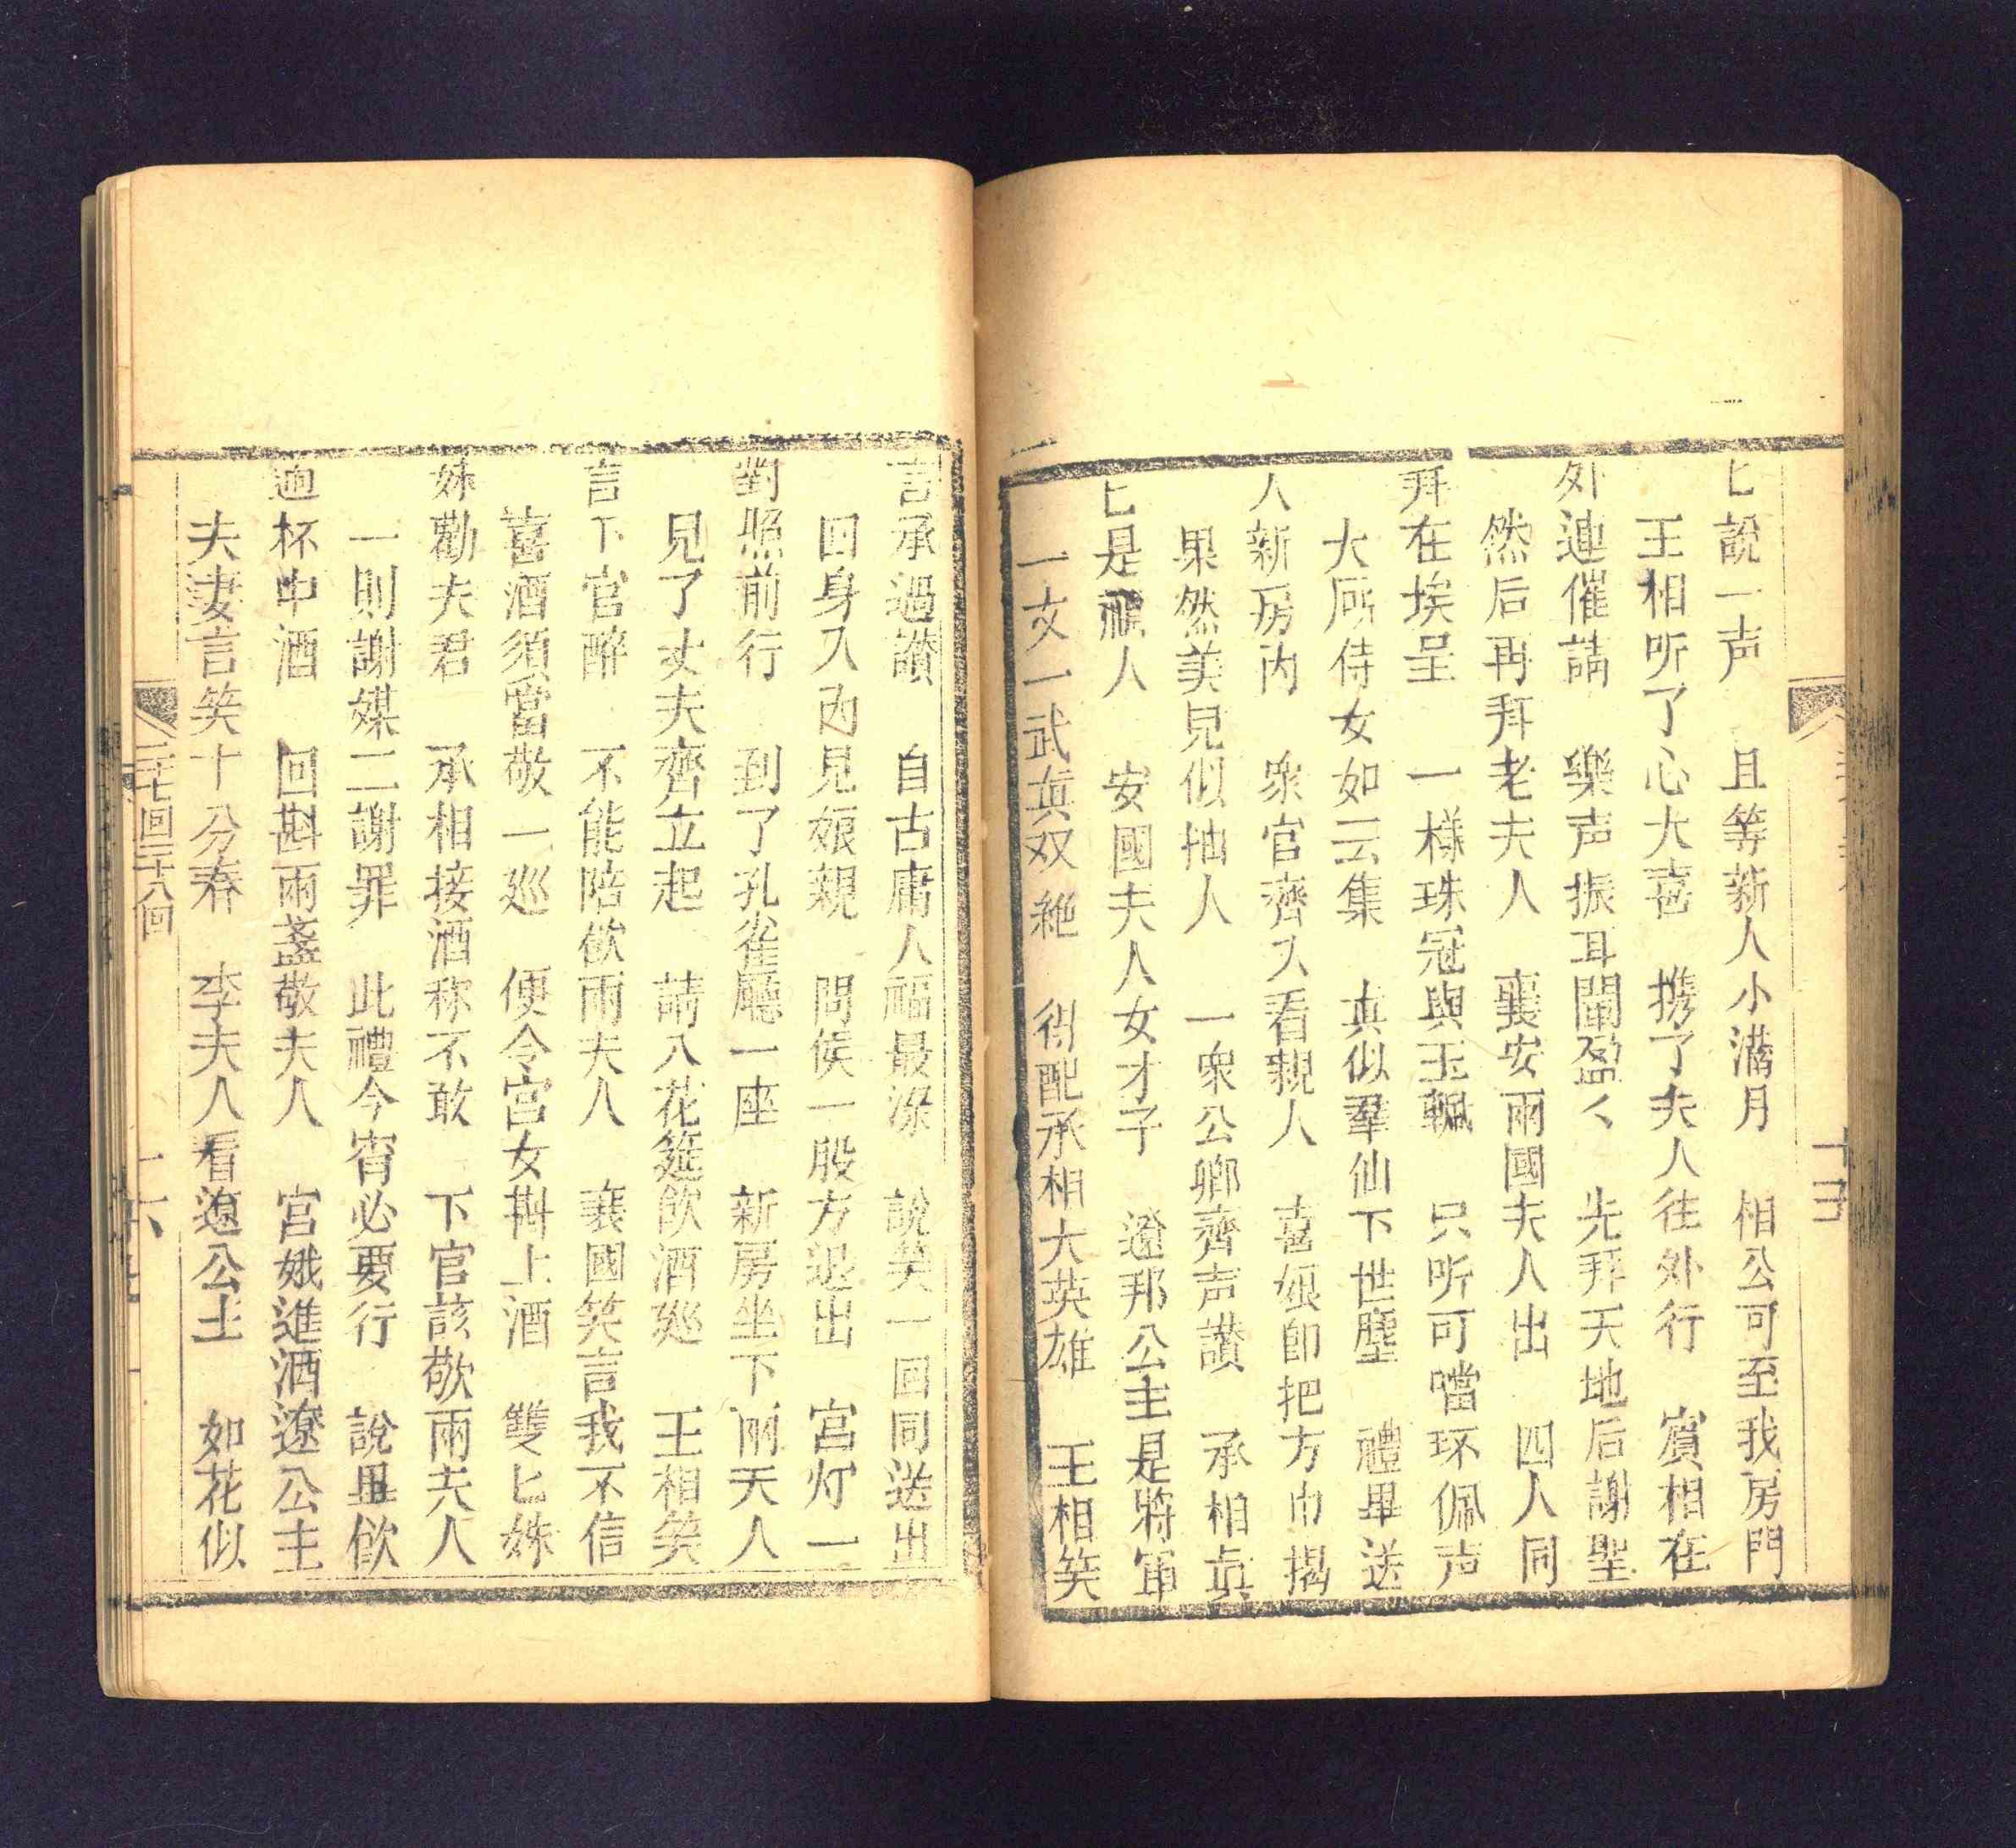 匕說一声　且等新人小滿月　相公可至我房門
王相听了心大喜　携了夫人往外行　賓相在
外連催請　樂声振耳鬧盈く　先拜天地后謝聖
然后再拜老夫人　襄安兩國夫人出　四人同
拜在埃呈　一樣珠冠與玉珮　只听可噹环佩声
大厼侍女如云集　真似羣仙下世塵　禮畢送
人新房內　衆官齊入看親人　喜娘卽把方巾揭
果然美見似抽人　一衆公卿齊声讃　承相眞
匕是福人　安國夫人女才子　遼邦公主是將軍
一文一武眞双絶　得配承相大英雄　王相笑
十三
言承過讃　自古庸人福最深　說笑一回同送出
回身入內見娘親　問侯一般方退出　宮灯一
對照前行　到了孔雀廳一座　新房坐下兩夫人
見了丈夫齊立起　請入花筵飲酒廵　王相笑
言下官醉　不能陪飲兩夫人　襄國笑言我不信
喜酒須當敬一廵　便令宮女斟上酒　雙匕姊
妹勸夫君　承相接酒称不敢　下官該敬兩夫人
一則謝媒二謝罪　此禮今宵必要行　說畢飲
迪杯中酒　回斟兩盞敬夫人　宮娥進酒遼公主
夫妻言笑十分春　李夫人看遼公主　如花似
二十七回二十八回
十六